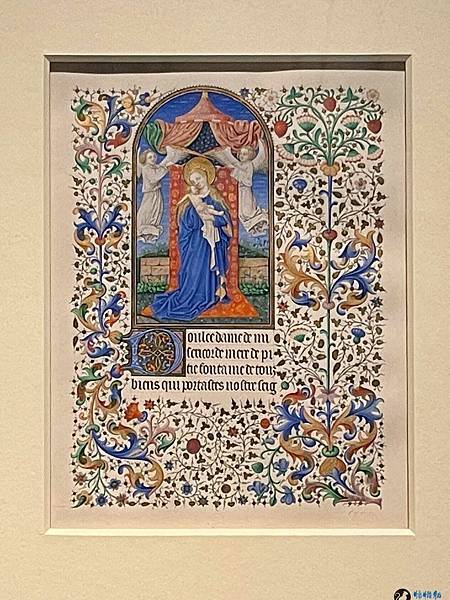 Doulce dame de mi
sericorde mere de pi
tie fontaine de tous
biens qui portastes nostre seig